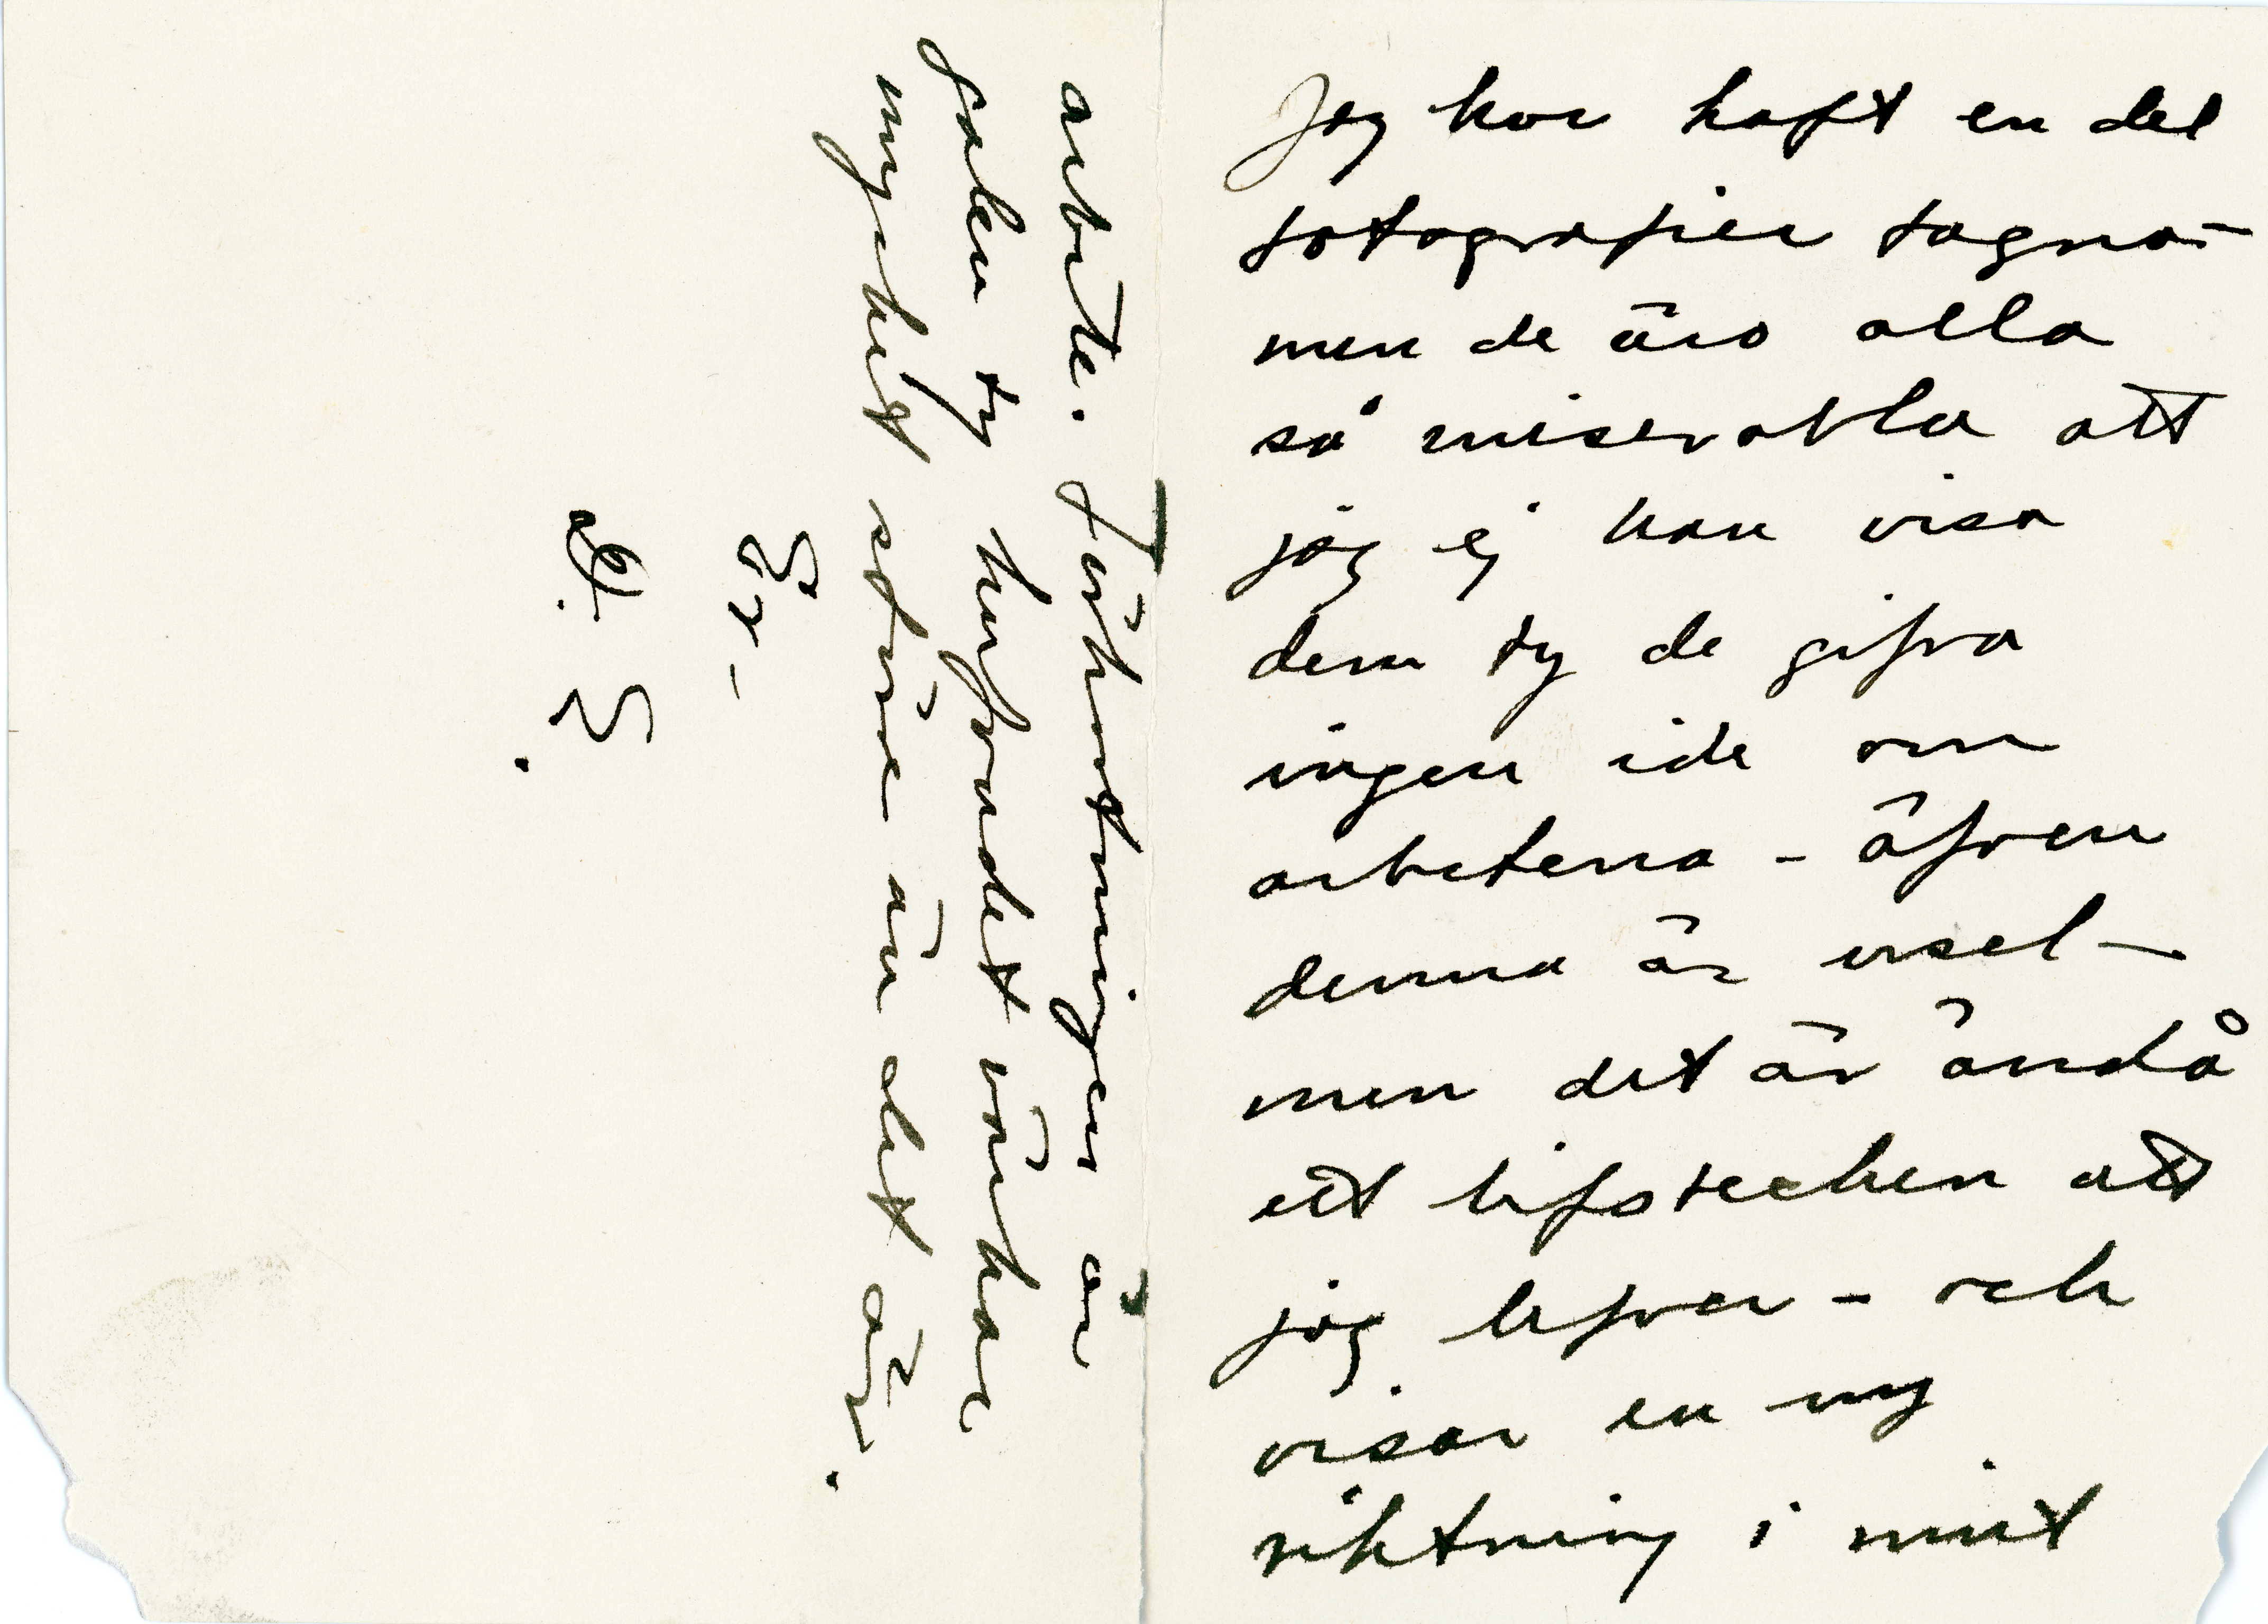 Jag har haft en del
fotografier tagna –
men de äro alla
så miserabla att
jag ej kan visa
dem ty de gifva
ingen ide om
arbetena – äfven
denna är usel –
men det är ändå
ett lifstecken att
jag lefver – och
visar en ny
riktning i mitt
arbete. Förkortningen är
galen ty hufvudet värkar
mycket större än det är.
Er –
A. E.